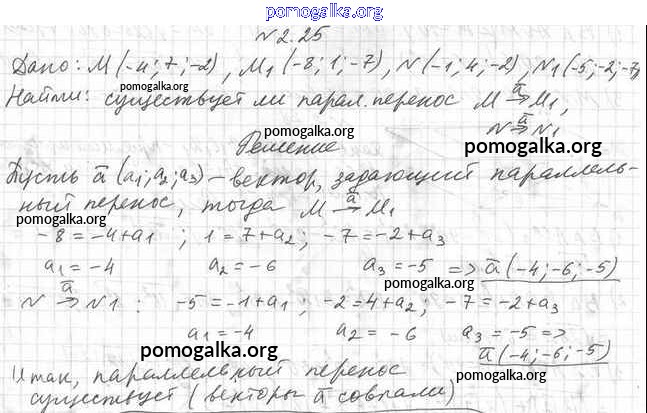 pomogalka.org
N 2.25
Дано: M(-4; 7; -2), M1(-8; 1; -7), N(-1; 4; -2), N1(-5; -2; -7)
Найти: существует ли парал. перенос M →ā M1,
pomogalka.org N →ā N1
Решение pomogalka.org
Пусть ā(a1; a2; a3) – вектор, задающий параллель-
ный перенос, тогда M →ā M1
pomogalka.org pomogalka.org
-8 = -4 + a1 ; 1 = 7 + a2 ; -7 = -2 + a3
a1 = -4 a2 = -6 a3 = -5 => ā(-4; -6; -5)
pomogalka.org
N →ā N1 : -5 = -1 + a1 ; -2 = 4 + a2 ; -7 = -2 + a3
a1 = -4 a2 = -6 a3 = -5 =>
pomogalka.org ā(-4; -6; -5)
Итак, параллельный перенос
pomogalka.org
существует (векторы ā совпали)